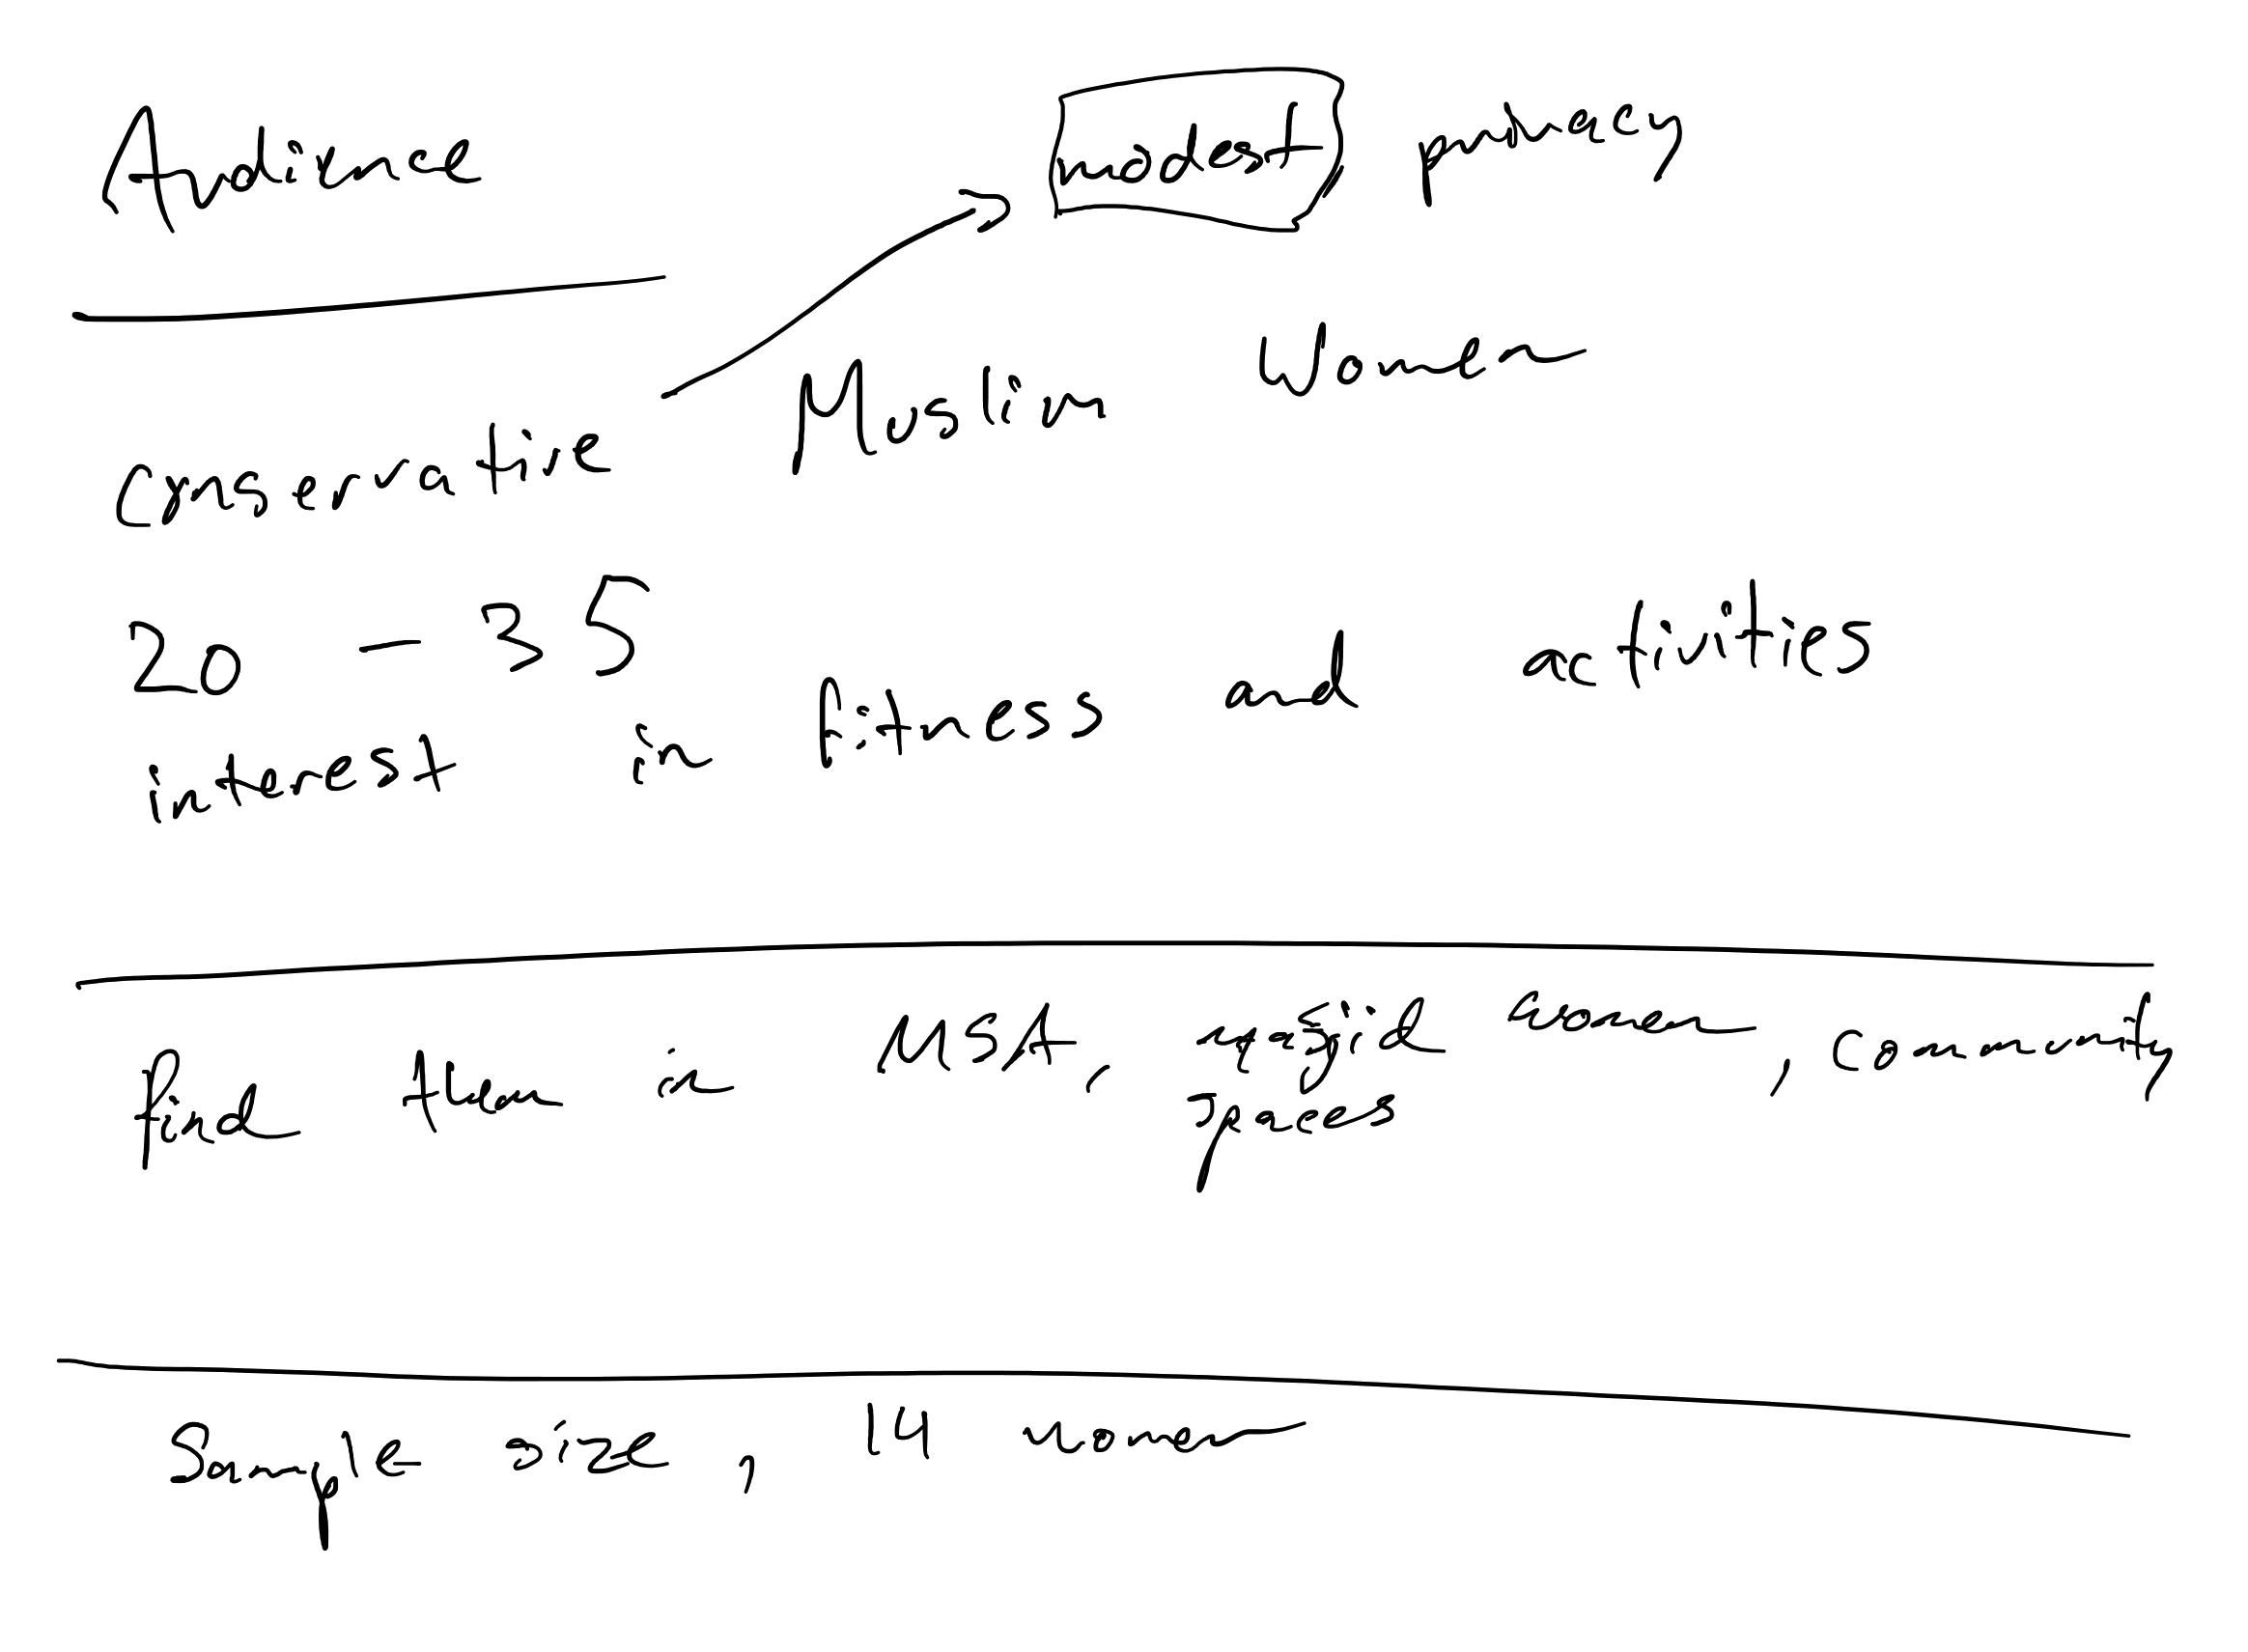 Audience
modest privacy
Conservative Muslim Women
20 - 35
interest in fitness and activities
find them in MSA, masjid women, community
spaces
Sample size, 14 women